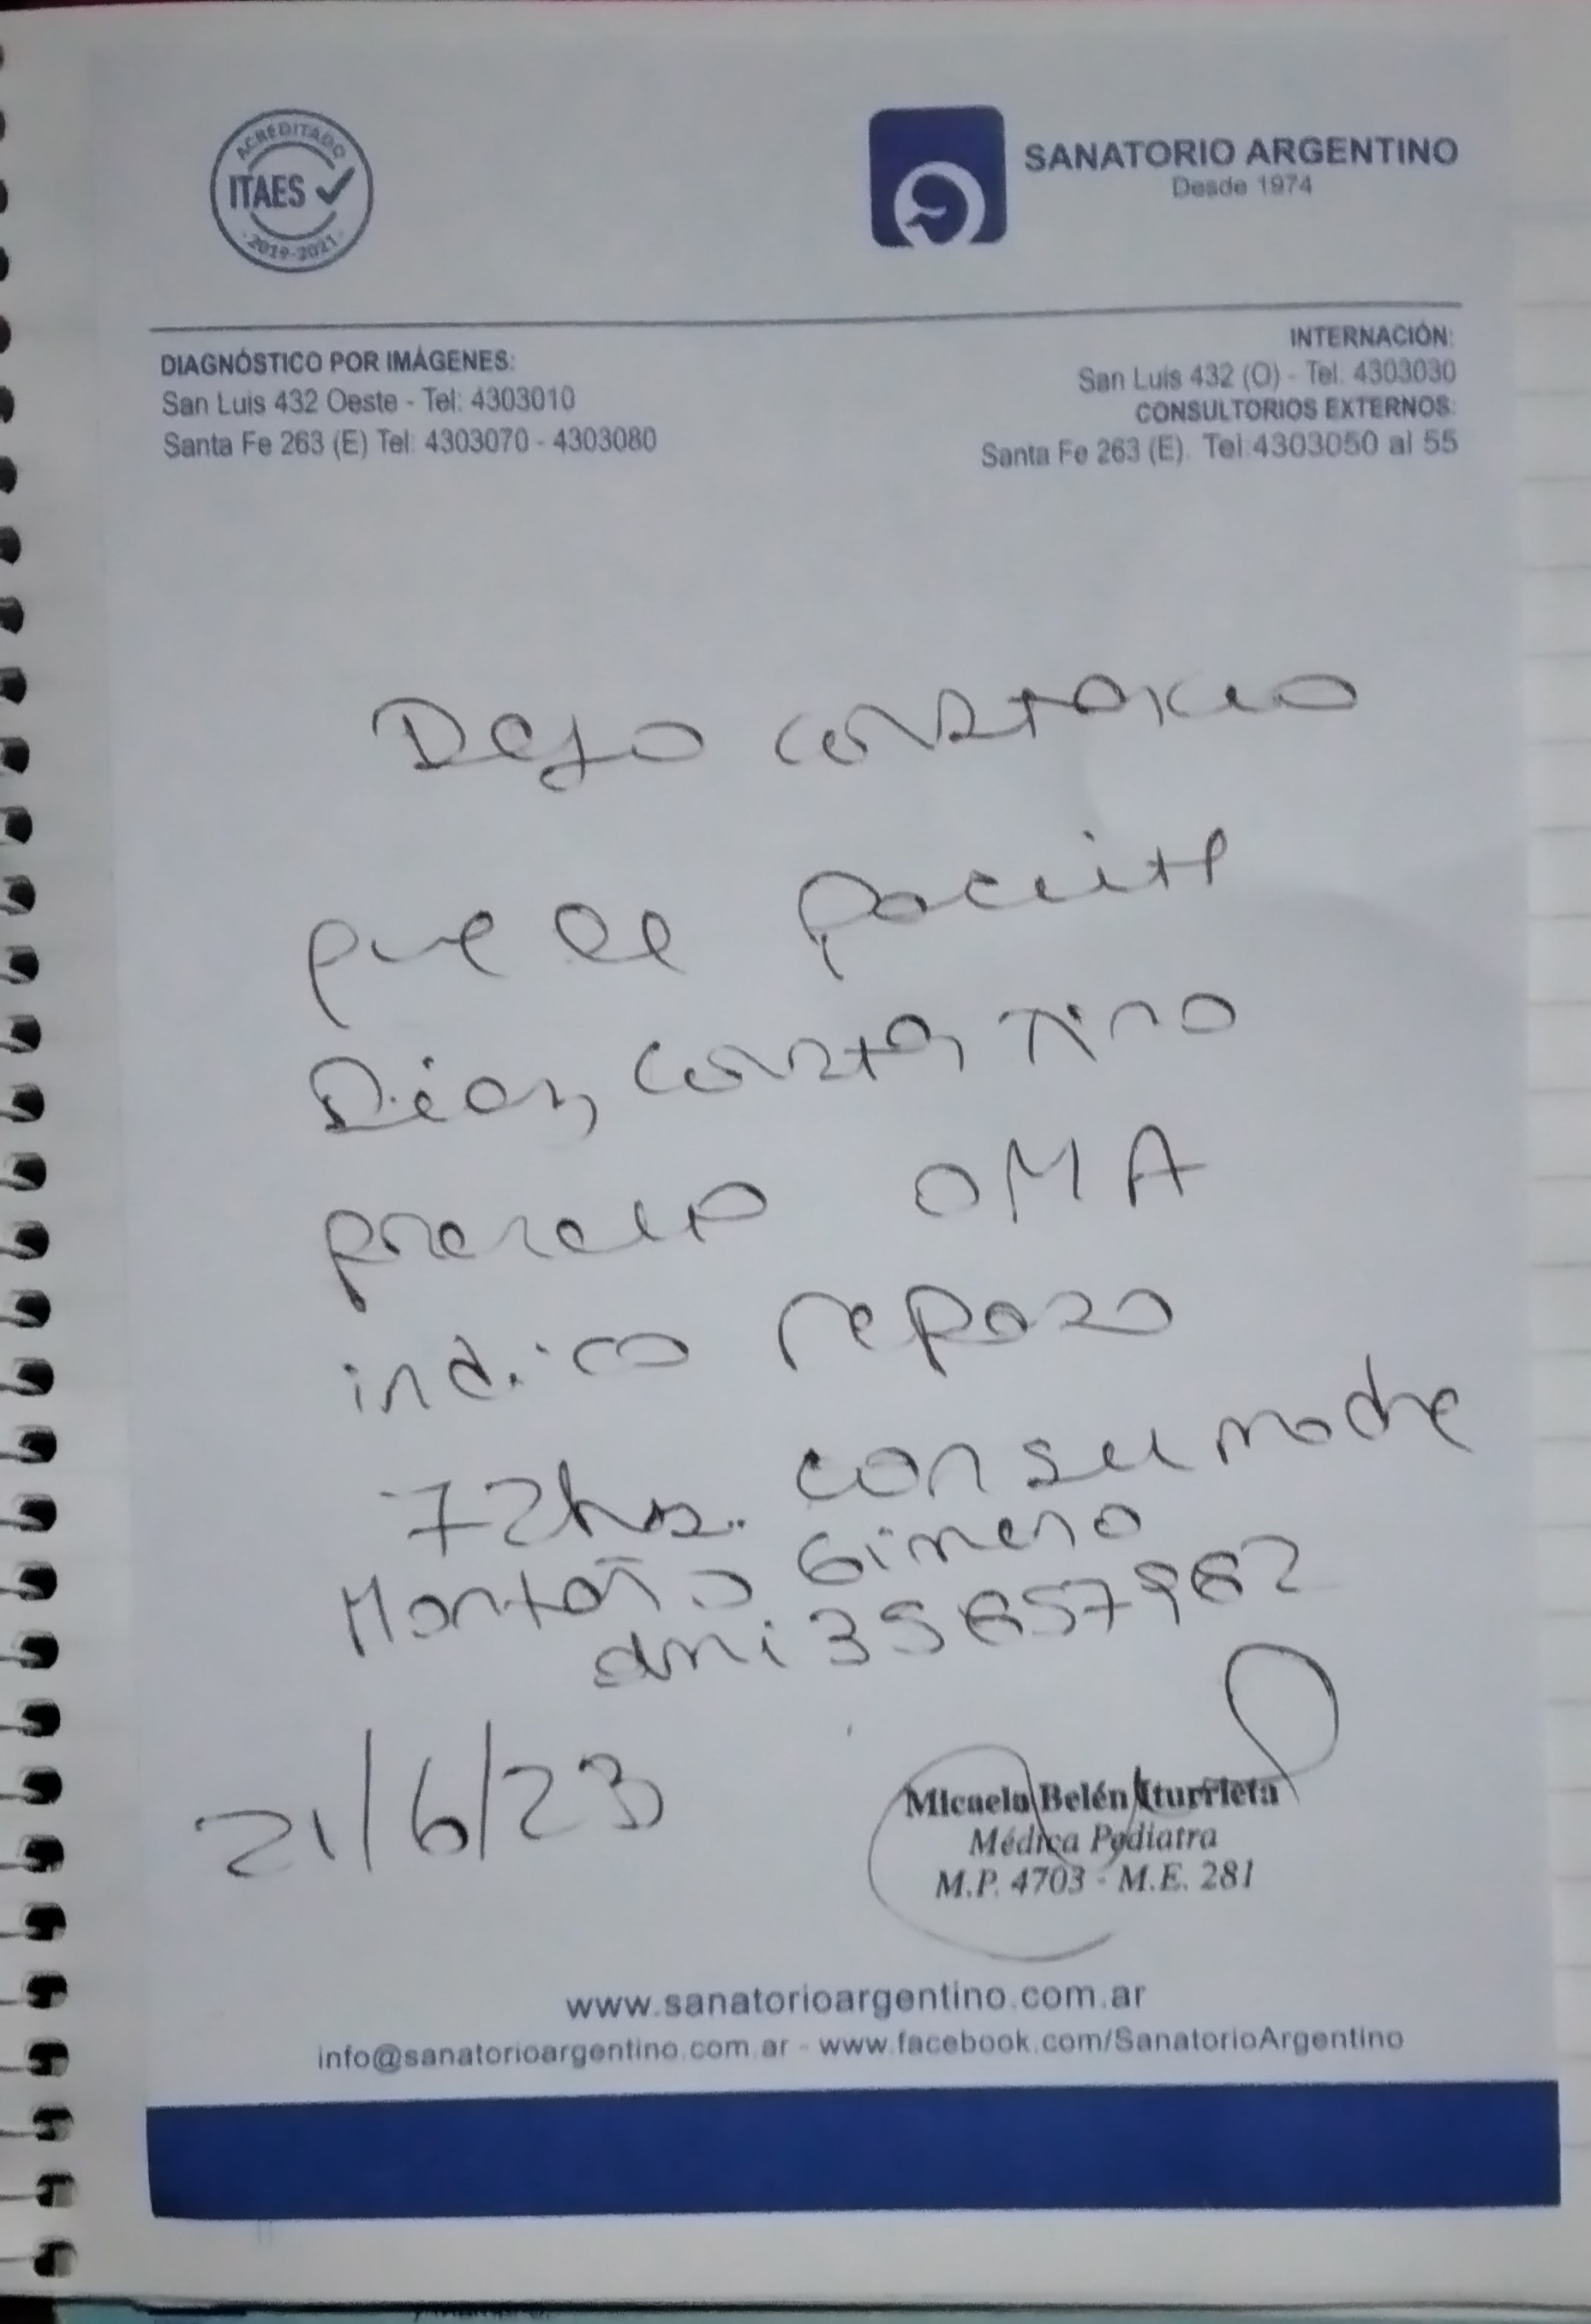 ACREDITADO
ITAES
2019-2021
SANATORIO ARGENTINO
Desde 1974
DIAGNÓSTICO POR IMÁGENES:
San Luis 432 Oeste - Tel: 4303010
Santa Fe 263 (E) Tel: 4303070 - 4303080
INTERNACIÓN:
San Luis 432 (O) - Tel. 4303030
CONSULTORIOS EXTERNOS:
Santa Fe 263 (E). Tel:4303050 al 55
Dejo constancia
que el paciente
Díaz, Constantino
presenta OMA
indico reposo
72hs. con su madre
Montaño Gimena
dni 35857962
21/6/23
Micaela Belén Iturrieta
Médica Pediatra
M.P. 4703 - M.E. 281
www.sanatorioargentino.com.ar
info@sanatorioargentino.com.ar - www.facebook.com/SanatorioArgentino